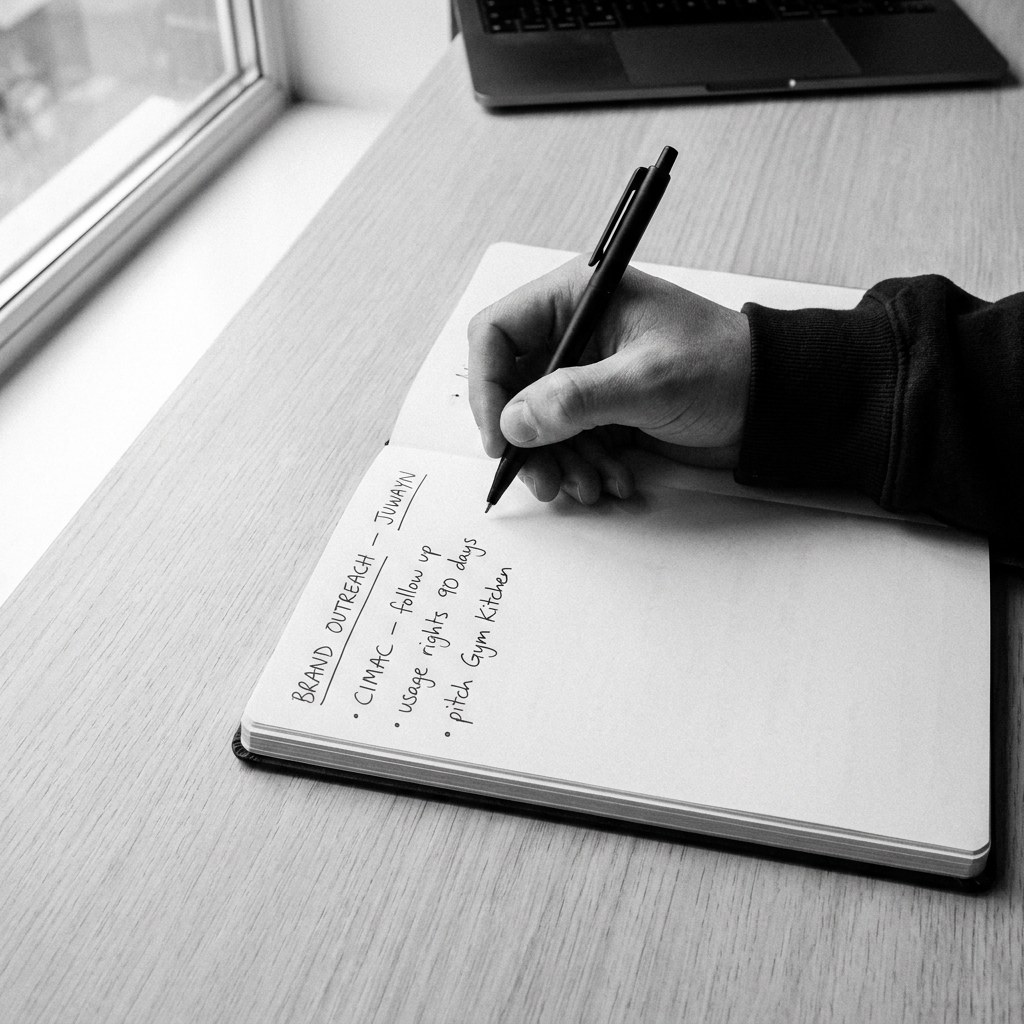 BRAND OUTREACH – JUWAYN
• CIMAC – follow up
• usage rights 90 days
• pitch Gym Kitchen